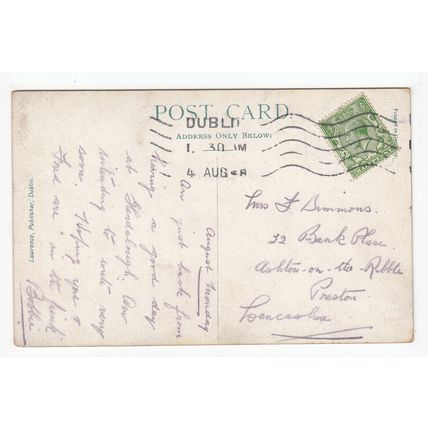 POST CARD.
ADDRESS ONLY BELOW.
DUBLI
1. 30 AM
4 AUG
August Monday.
Am just back from
having a good day
at Glendalough. Am
intending to write very
soon. Hoping you &
Fred are in the pink
Bobbie
Mrs F Simmons.
32 Bank Place.
Ashton-on-the-Ribble
Preston
Lancashire
Lawrence, Publisher, Dublin.
Printed in